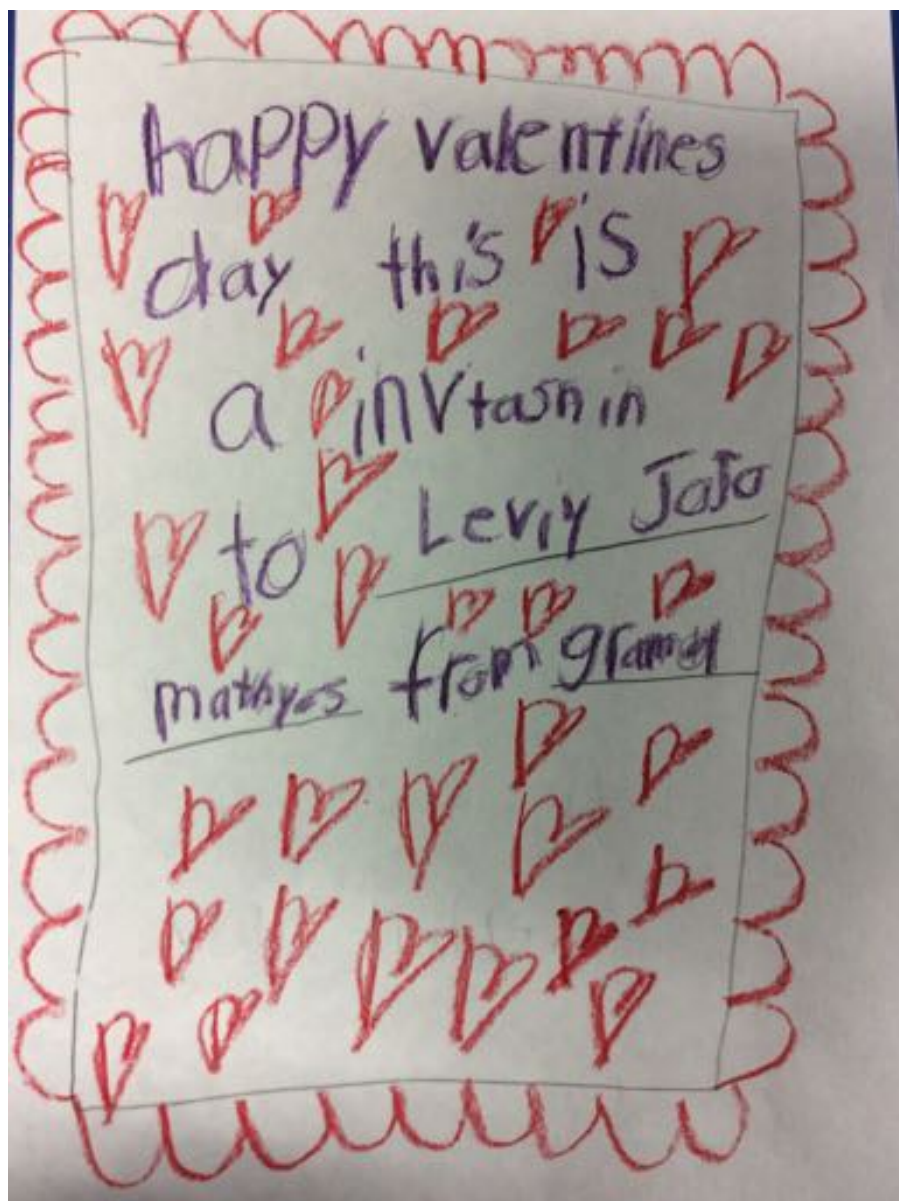 happy valentines
day this is
a invtashin
to Leviy JoJo
mathyos from